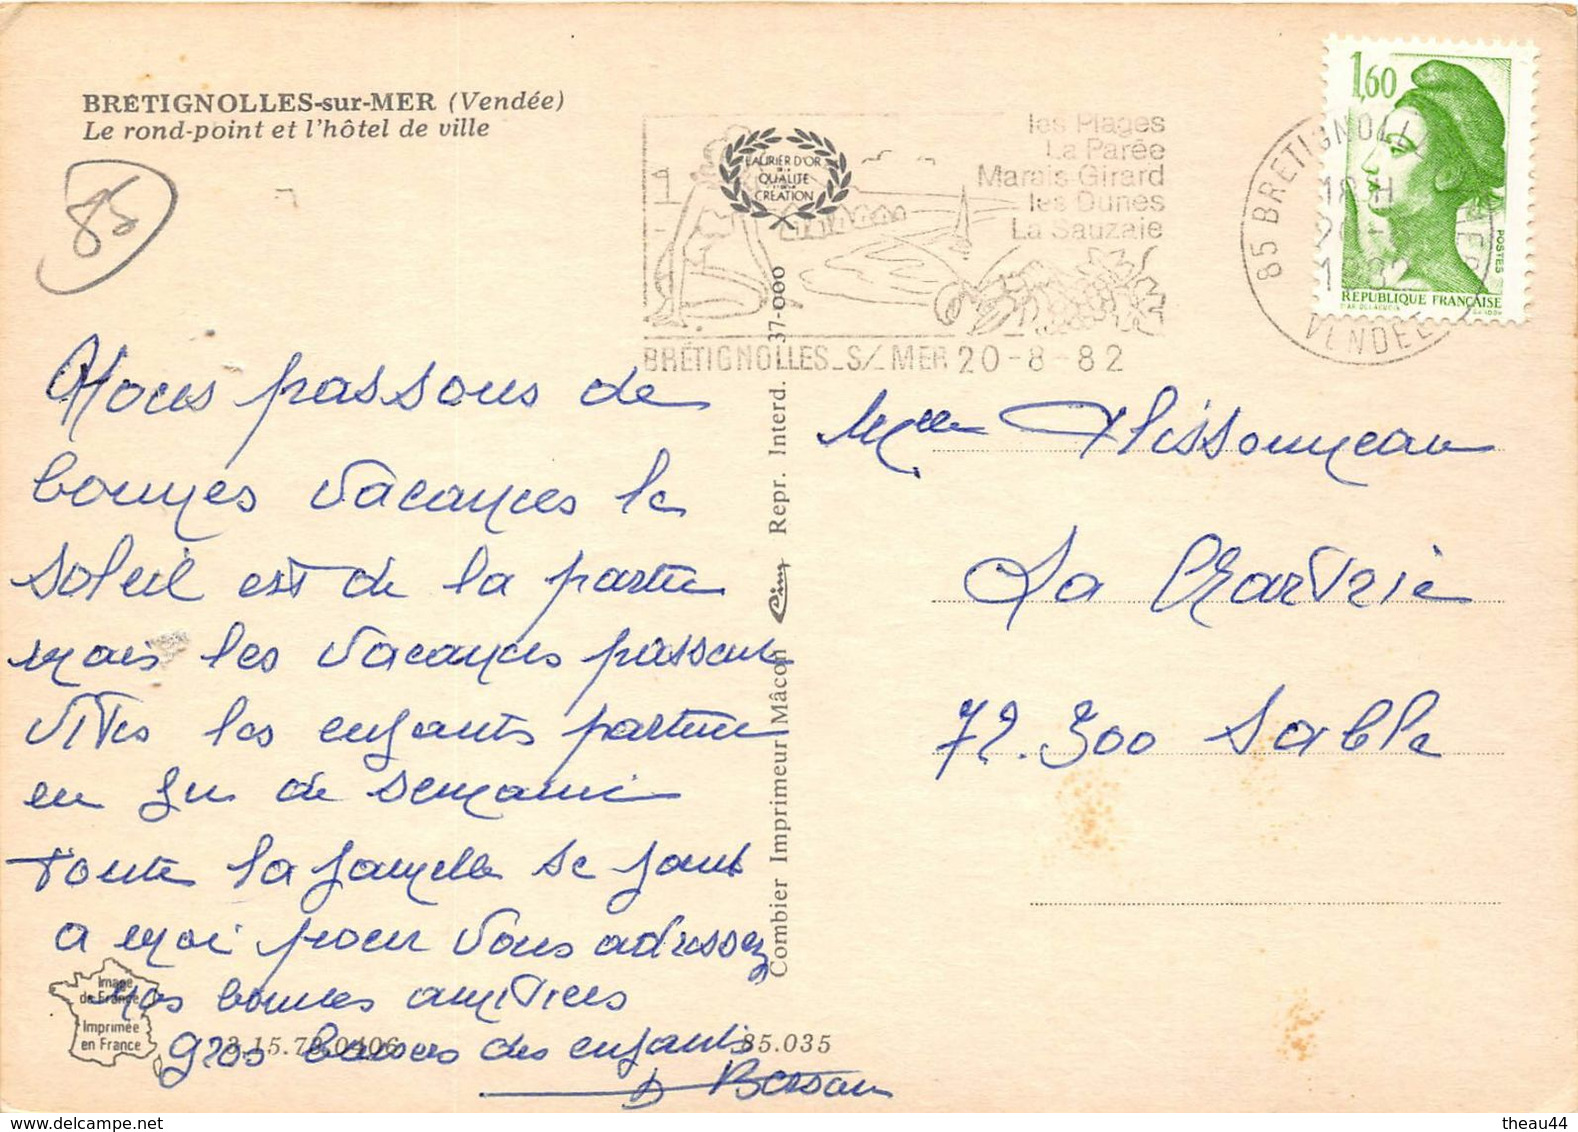 BRETIGNOLLES-sur-MER (Vendée)
Le rond-point et l'hôtel de ville
85
LAURIER D'OR
DE LA
QUALITE
CREATION
les Plages
La Parée
Marais Girard
les Dunes
La Sauzaie
BRÉTIGNOLLES_S/ MER 20-8-82
85 BRETIGNOLL
18 H
20-8
1982
VENDEE
1,60
POSTES
REPUBLIQUE FRANÇAISE
Nous passons de
bonnes vacances le
soleil est de la partie
mais les vacances passent
vites les enfants
en fin de semaine
toute la famille se joint
a moi pour vous adressez
nos bonnes amitiées
gros baisers des enfants
Mme
La
72.300 Sable
Combier Imprimeur Mâcon Cim Repr. Interd. 37-000
Image
de France
Imprimée
en France
85.035
theau44